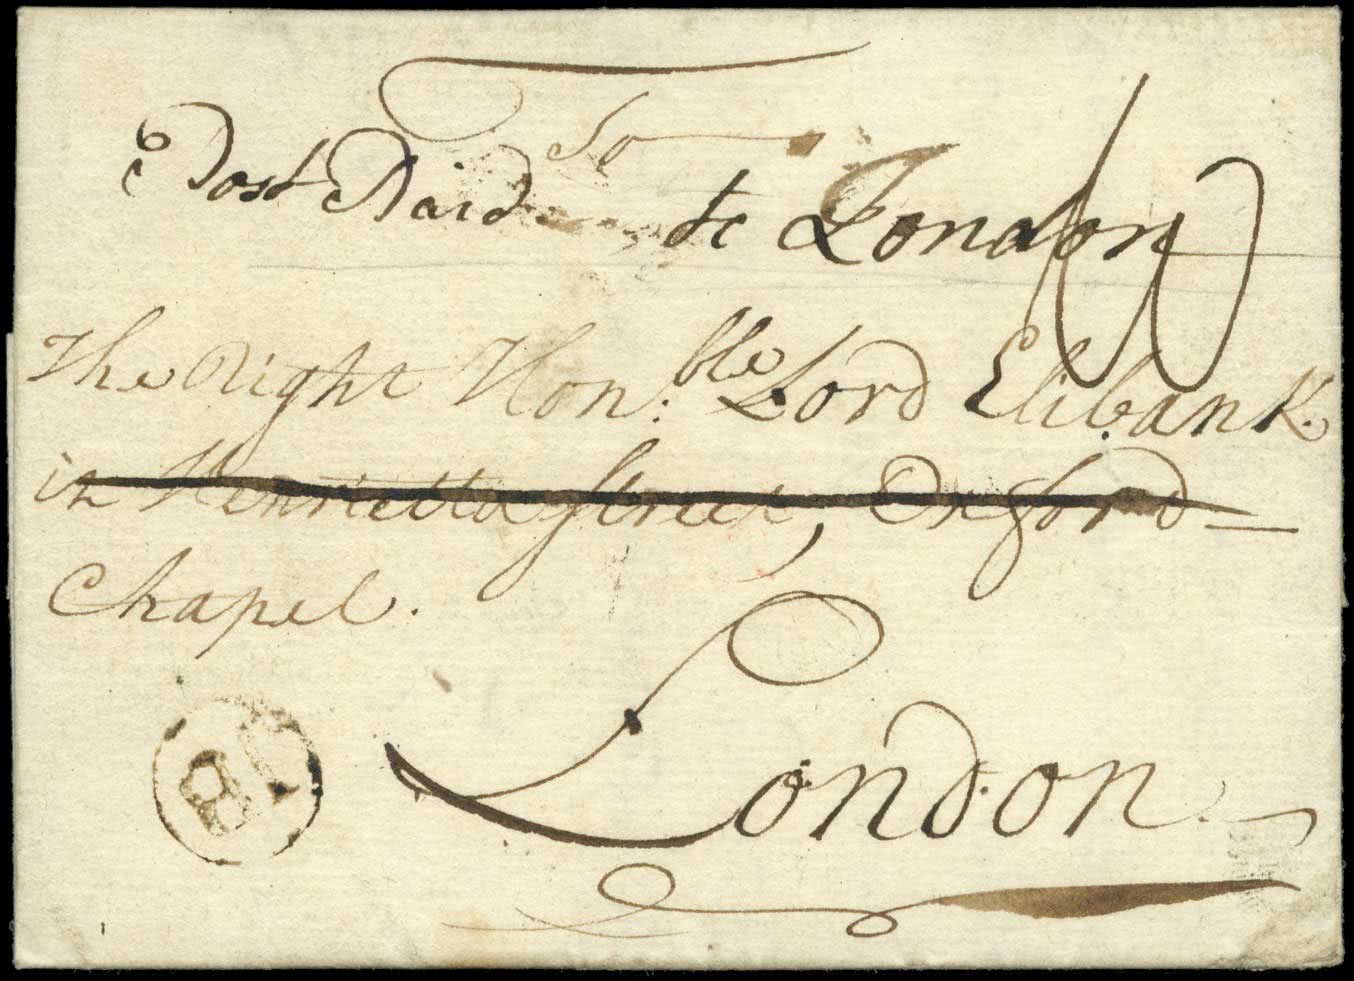 To
Post Paid to London
The Right Hon:ble Lord Elibank.
in Henrietta Street, Oxford
Chapel.
London.